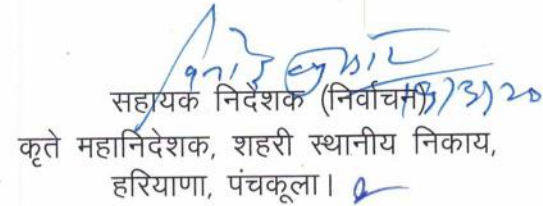 सहायक निदेशक (निर्वाचन)
कृते महानिदेशक, शहरी स्थानीय निकाय,
हरियाणा, पंचकूला।